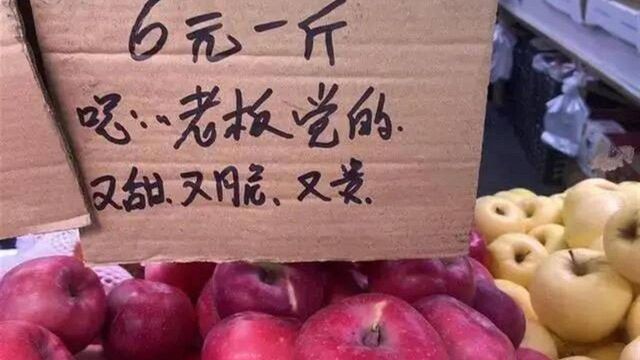 6元一斤
呃:..老板觉的.
又甜.又脆.又贵.